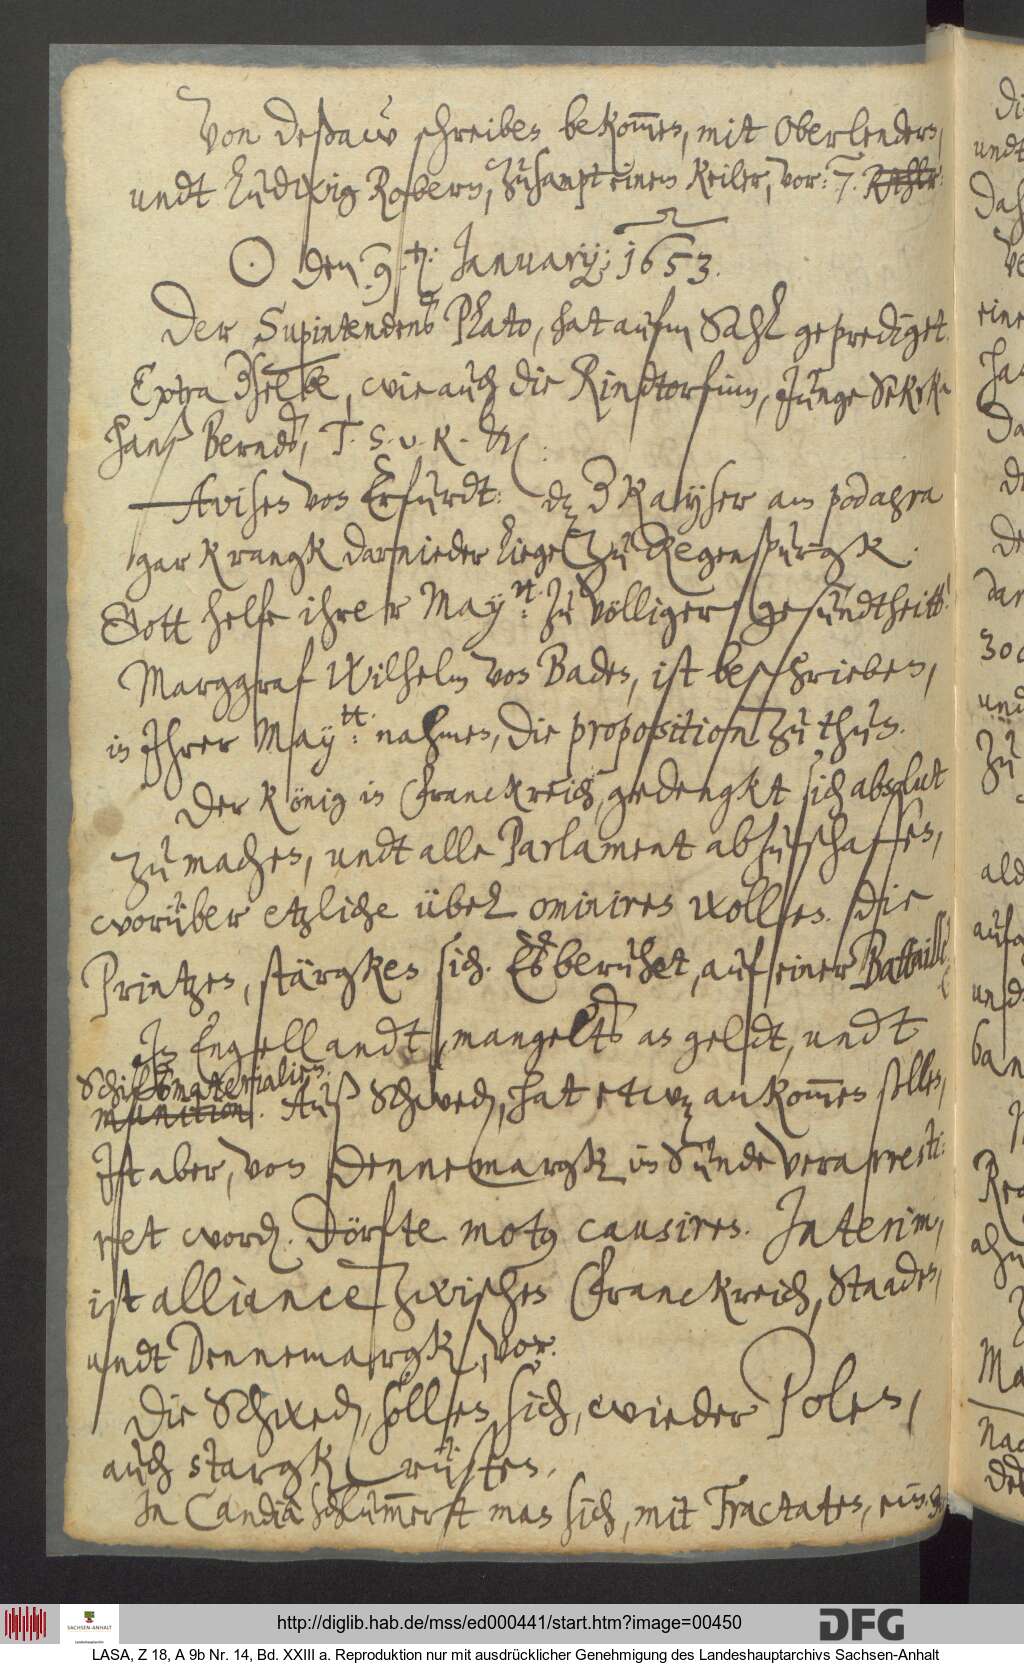 Von Deßaw schreiben bekommen, mit Oberlendern,
undt Ludwig Röbern, zusampt einem Keiler, vor: 7. Rthlr:
☉ den 9.ten: January; 1653.
Der Supintendens Plato, hat aufm Sahl geprediget.
Extra zu, wie auch die Rindtorfinn, Junge
Hanß Berndt, T. S. v. K. &c.
Avisen von Erfurdt: dz der Kayser am podagra
gar krangk darnieder liege zu Regenspurgk.
Gott helfe ihrer Maytt: zu völliger gesundtheitt!
Marggraf Wilhelm von Baden, ist beschrieben,
in Ihrer Maytt: nahmen, die proposition zu thun.
Der König in Franckreich, gedengkt sich absolut
zu machen, undt alle Parlament abzuschaffen,
worüber etzliche übel ominiren wollen. Die
Printzen, stärgken sich. Es beruhet, auf einer Battaille
In Engellandt, mangelts an geldt, undt
Schifsmaterialien.
munition. Auß Schweden, hat etwz ankommen sollen,
Ist aber, von Dennemargk im Sunde verarresti-
ret worden. Dörfte motus causiren. Interim,
ist alliance zwischen Franckreich, Staaden,
undt Dennemargk, vor.
Die Schweden, sollen sich, wieder Polen,
auch stargk rüsten.
In Candia schlummert man sich, mit Tractaten, ein.
http://diglib.hab.de/mss/ed000441/start.htm?image=00450
SACHSEN-ANHALT
Landeshauptarchiv
DFG
LASA, Z 18, A 9b Nr. 14, Bd. XXIII a. Reproduktion nur mit ausdrücklicher Genehmigung des Landeshauptarchivs Sachsen-Anhalt